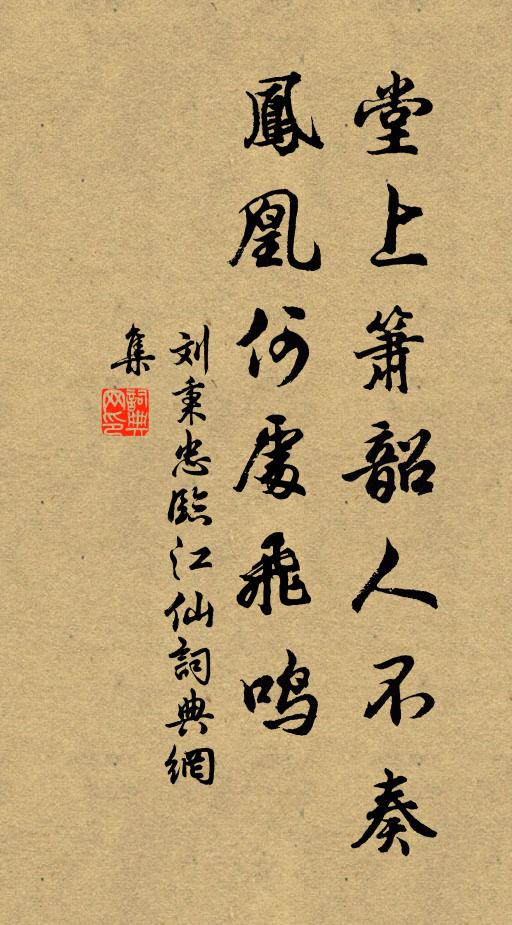 堂上箫韶人不奏
鳳凰何處飛鳴
刘秉忠臨江仙詞典網
集
詞典網印